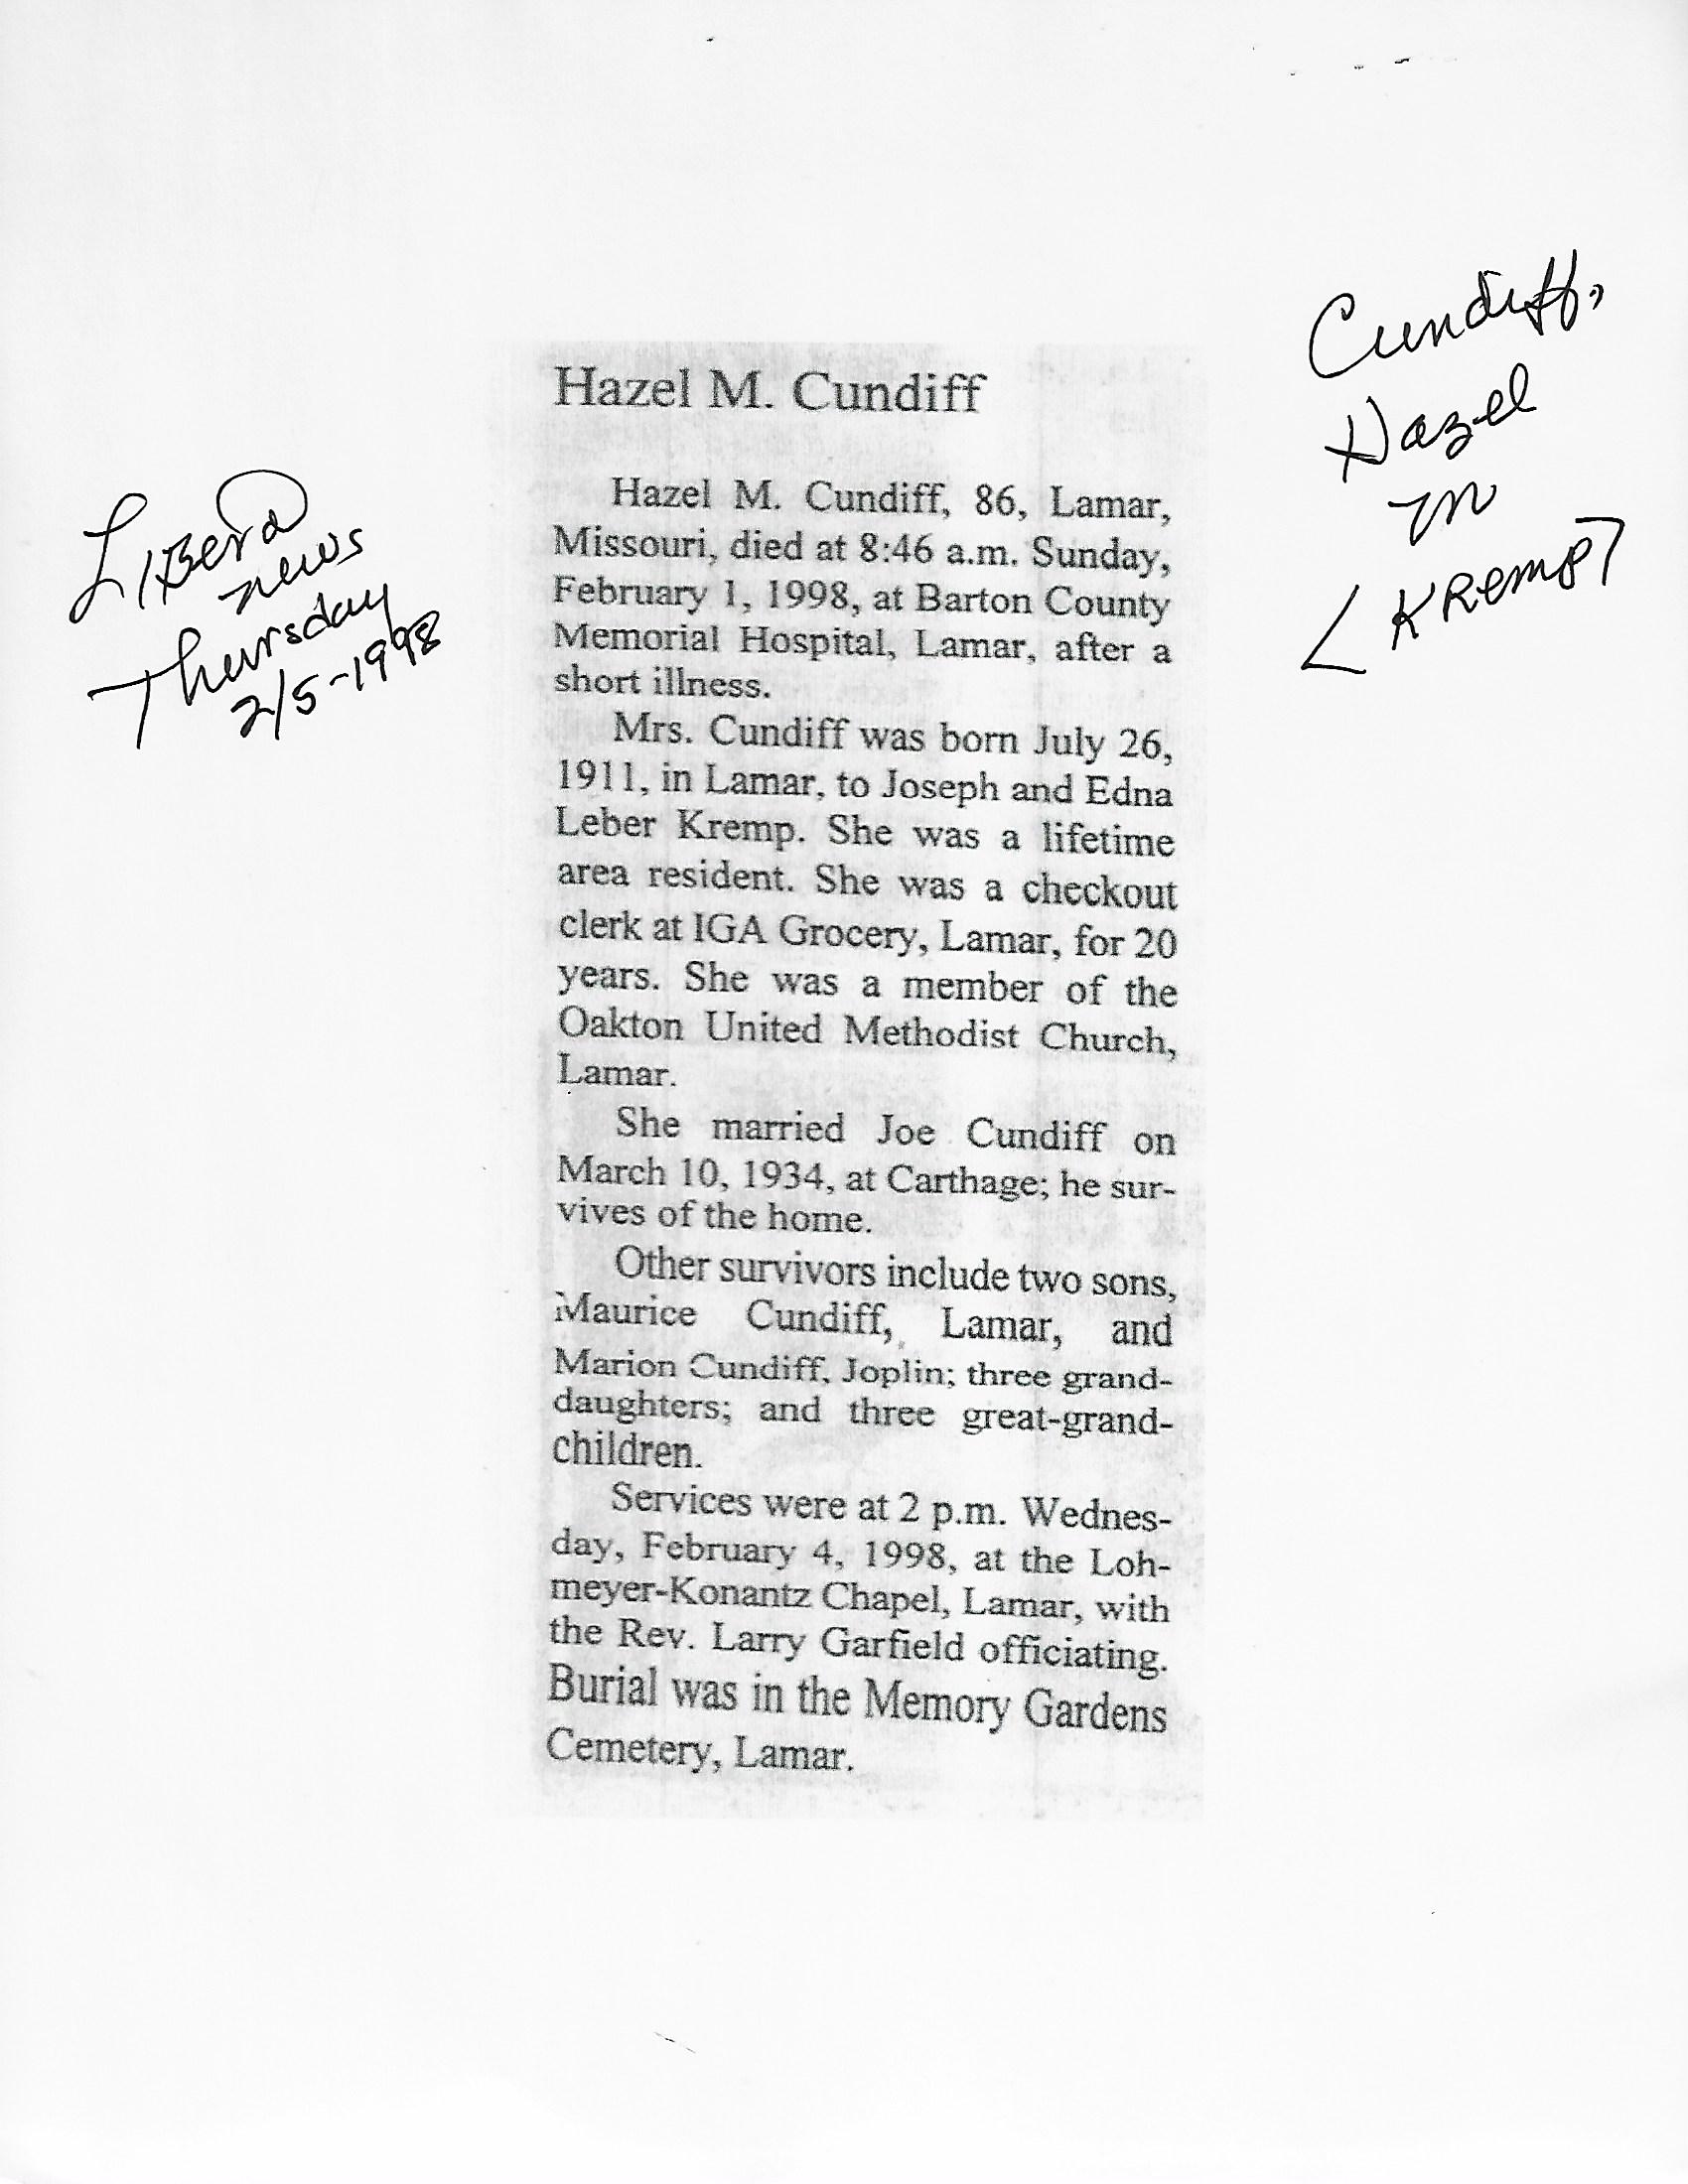 Cundiff,
Hazel
m
<Kremp>
Liberal
news
Thursday
2/5-1998
Hazel M. Cundiff
Hazel M. Cundiff, 86, Lamar,
Missouri, died at 8:46 a.m. Sunday,
February 1, 1998, at Barton County
Memorial Hospital, Lamar, after a
short illness.
Mrs. Cundiff was born July 26,
1911, in Lamar, to Joseph and Edna
Leber Kremp. She was a lifetime
area resident. She was a checkout
clerk at IGA Grocery, Lamar, for 20
years. She was a member of the
Oakton United Methodist Church,
Lamar.
She married Joe Cundiff on
March 10, 1934, at Carthage; he sur-
vives of the home.
Other survivors include two sons,
Maurice Cundiff, Lamar, and
Marion Cundiff, Joplin; three grand-
daughters; and three great-grand-
children.
Services were at 2 p.m. Wednes-
day, February 4, 1998, at the Loh-
meyer-Konantz Chapel, Lamar, with
the Rev. Larry Garfield officiating.
Burial was in the Memory Gardens
Cemetery, Lamar.